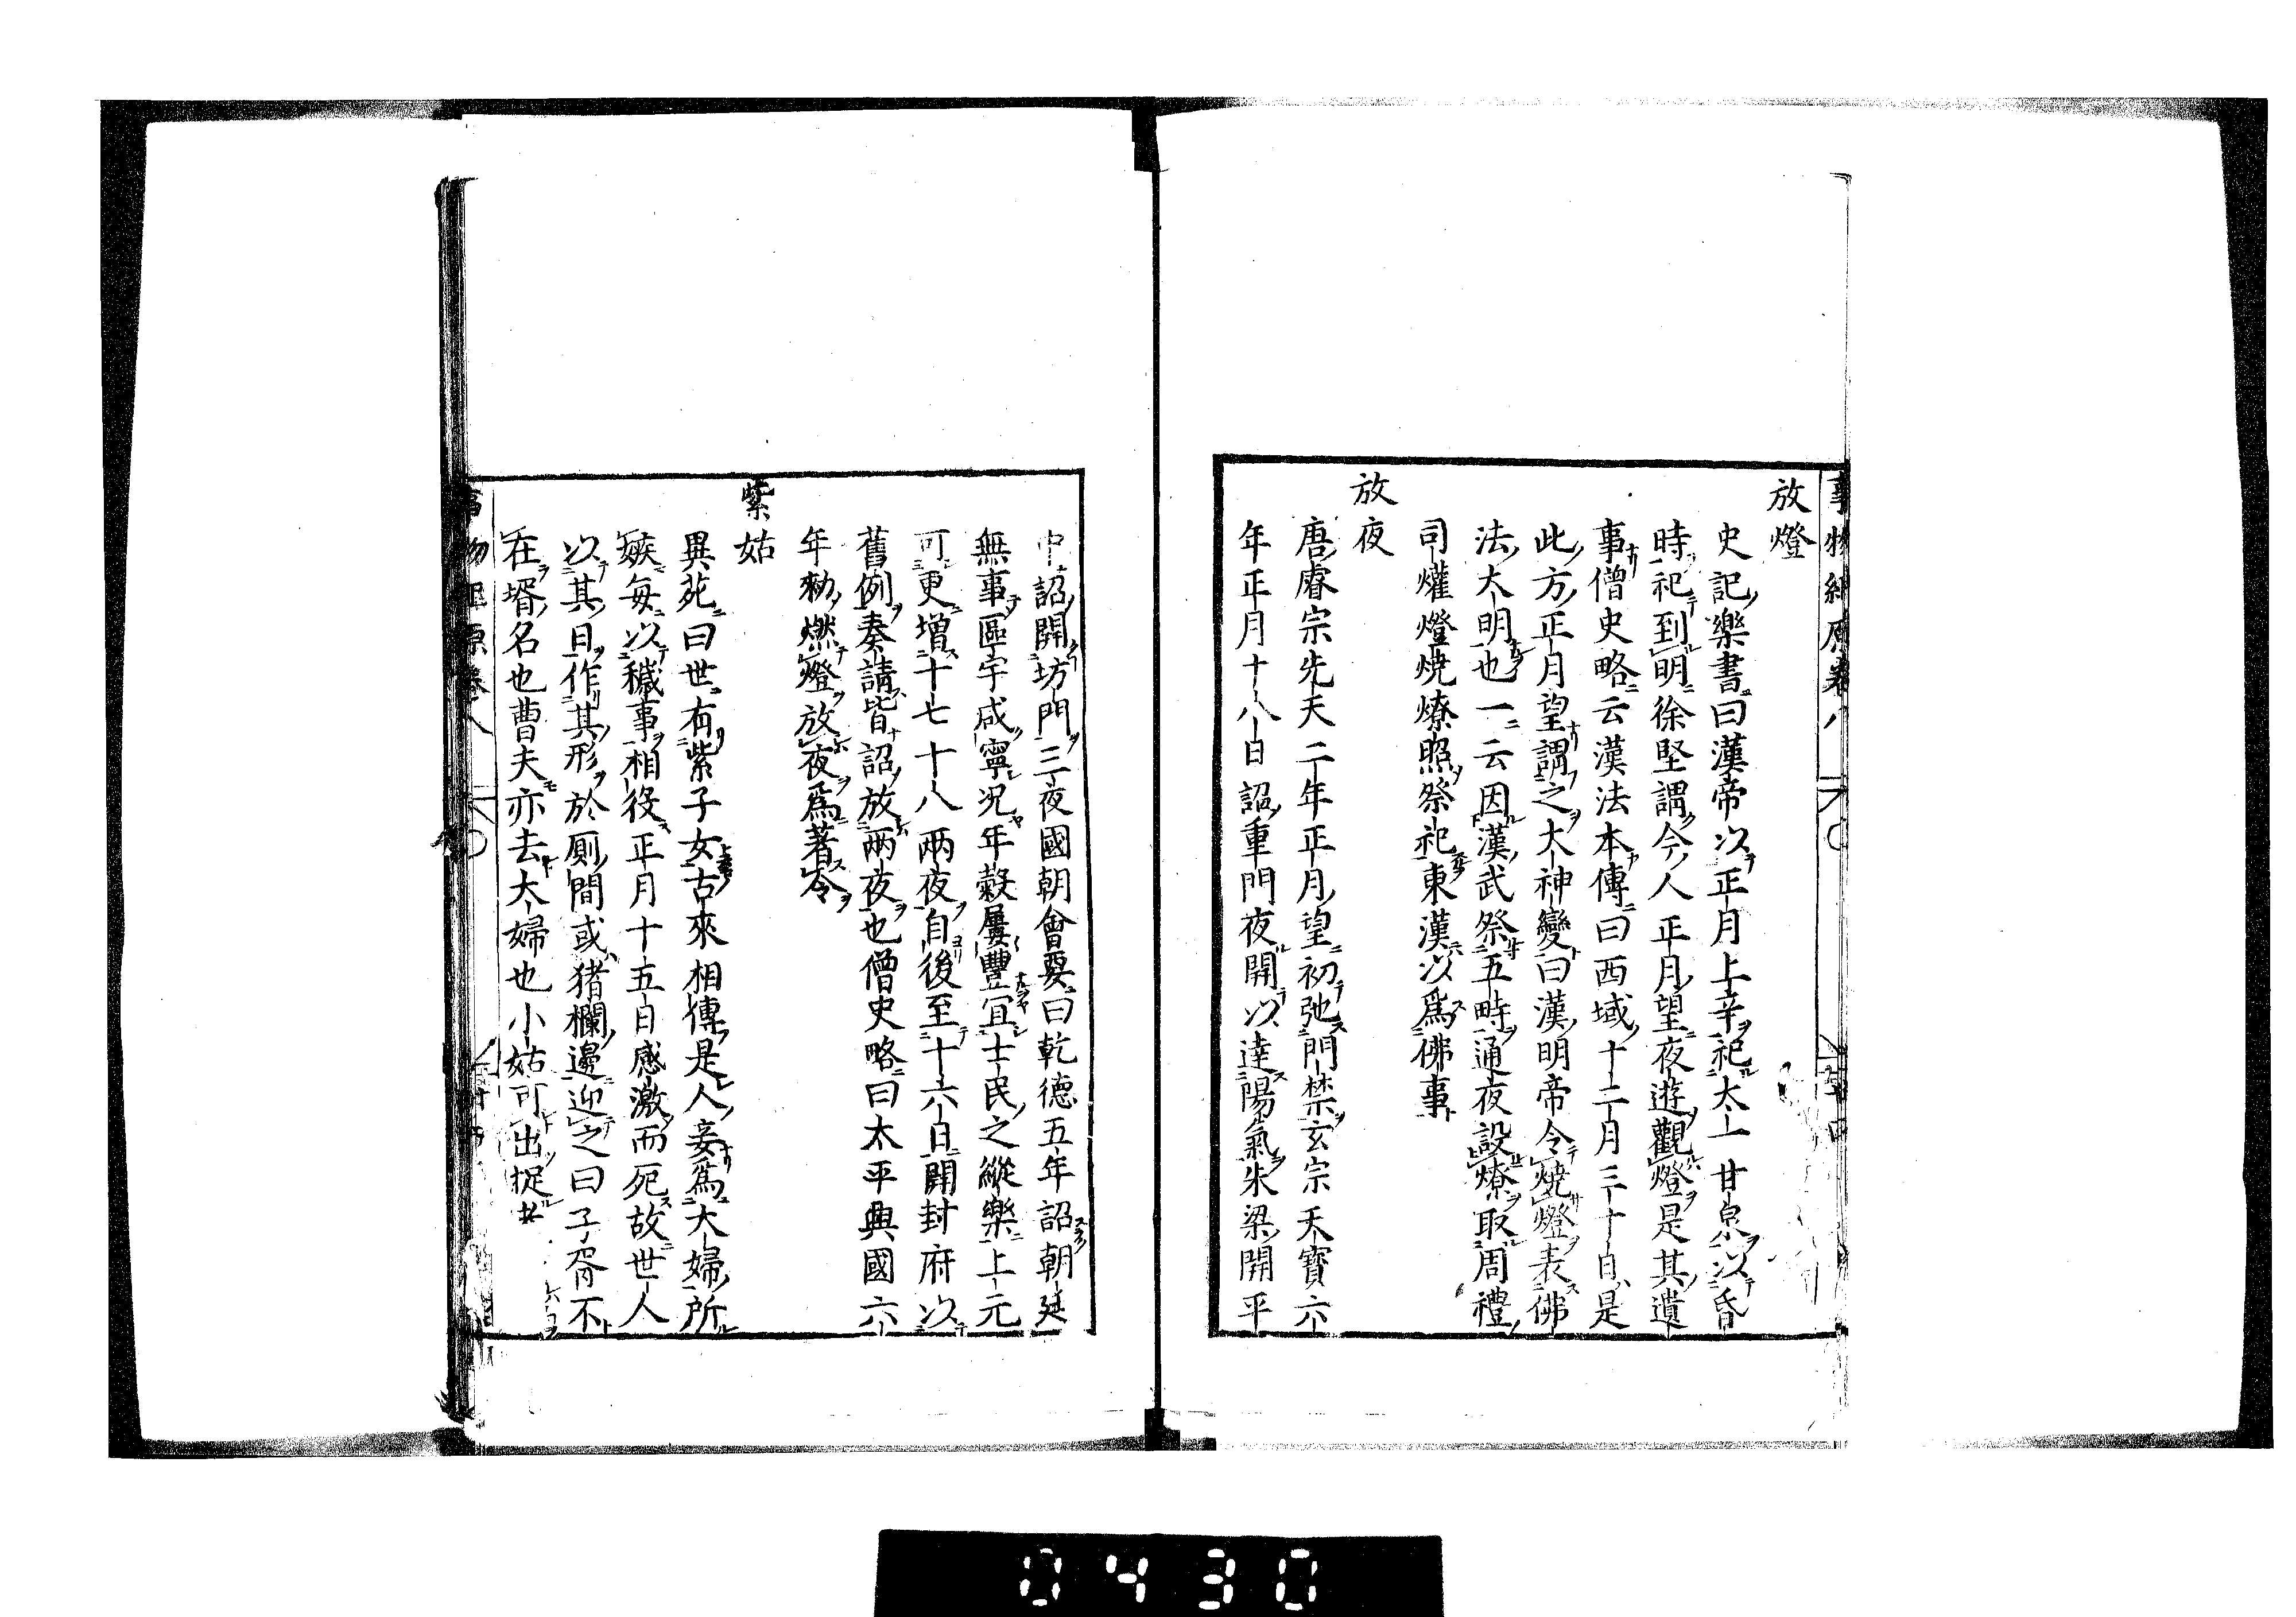 事物紀原卷八
放燈
史記樂書曰漢帝以正月上辛祀太一甘泉以昏
時祀到明徐堅謂今人正月望夜遊觀燈是其遺
事僧史略云漢法本傳曰西域十二月三十日是
此方正月望謂之大神變曰漢明帝令燒燈表佛
法大明也一云因漢武祭五畤通夜設燎取周禮
司爟燈燒燎照祭祀東漢以爲佛事
放夜
唐睿宗先天二年正月望初弛門禁玄宗天寶六
年正月十八日詔重門夜開以達陽氣朱梁開平
中詔開坊門三夜國朝會要曰乾德五年詔朝廷
無事區宇咸寧況年穀屢豐宜士民之縱樂上元
可更增十七十八兩夜自後至十六日開封府以
舊例奏請皆詔放兩夜也僧史略曰太平興國六
年勅燃燈放夜爲著令
紫姑
異苑曰世有紫子女古來相傳是人妾爲大婦所
嫉每以穢事相役正月十五日感激而死故世人
以其日作其形於厠間或猪欄邊迎之曰子胥不
在壻名也曹夫亦去大婦也小姑可出捉
事物紀原卷八
0430